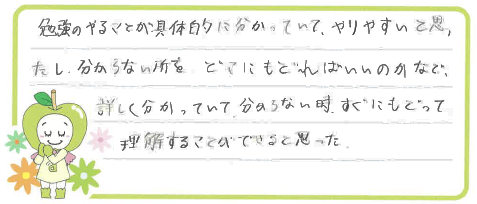 勉強のやることが具体的に分かっていて、やりやすいと思っ
たし、分からない所を どこにもどればいいのかなど、
詳しく分かっていて、分からない時、すぐにもどって
理解することができると思った。